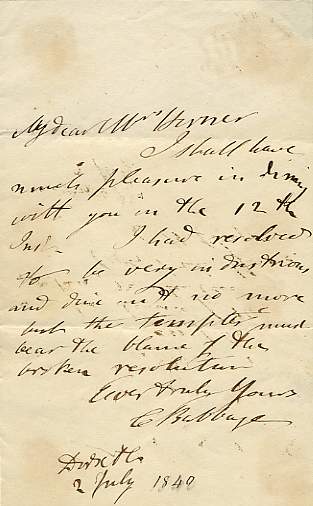 My dear Mrs Horner
I shall have
much pleasure in dining
with you on the 12th
Inst. I had resolved
to be very industrious
and dine out no more
but the tempter must
bear the blame of the
broken resolution
Ever truly Yours
C Babbage
Dorset St.
2 July 1840